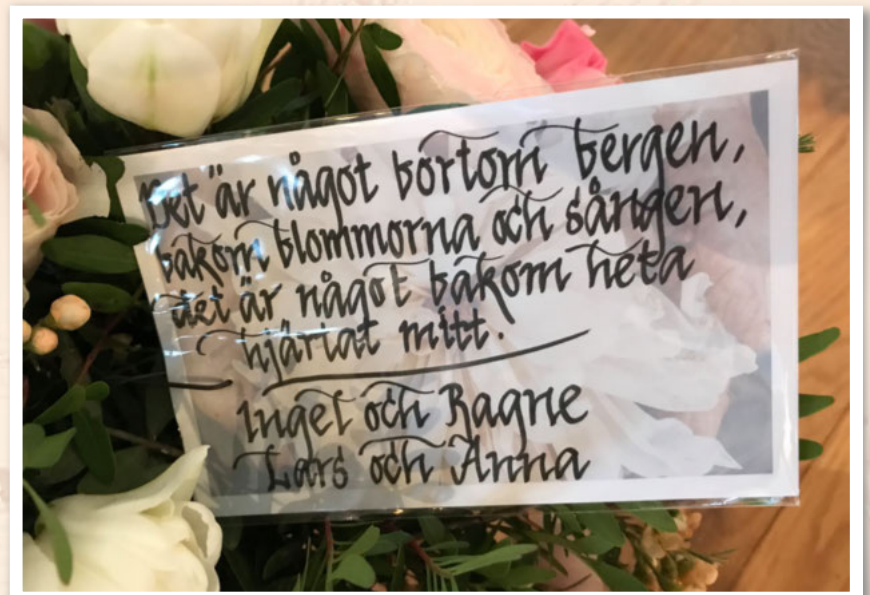 Det är något bortom bergen,
bakom blommorna och sången,
det är något bakom heta
hjärtat mitt.
Ingel och Ragne
Lars och Anna